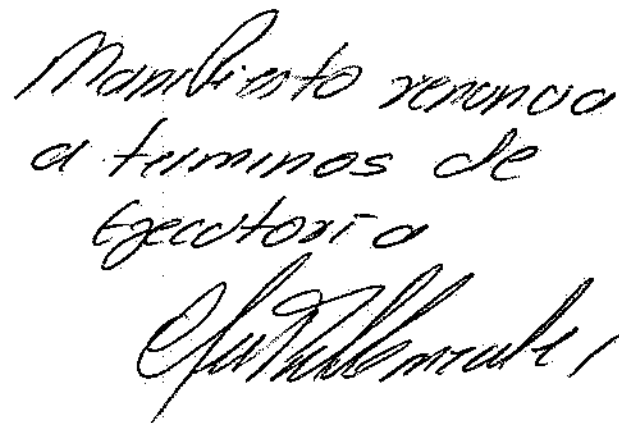 Manifiesto renuncia
a terminos de
Ejecutoria